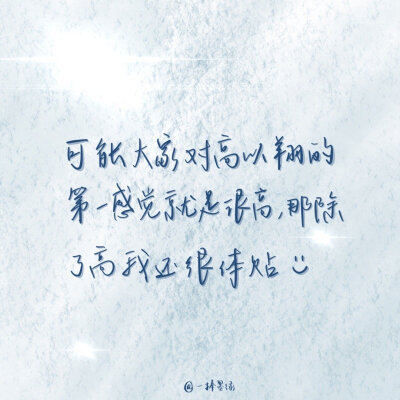 可能大家对高以翔的
第一感觉就是很高,那除
了高我还很体贴